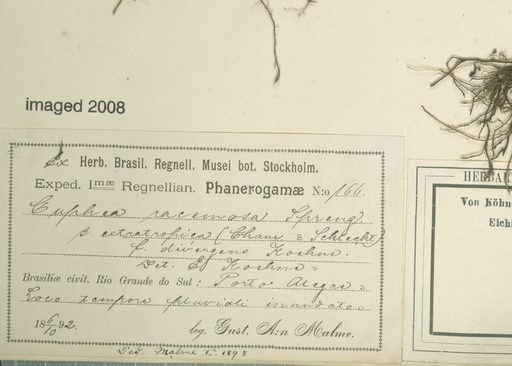 imaged 2008
Ex Herb. Brasil. Regnell. Musei bot. Stockholm.
Exped. Imæ Regnellian. Phanerogamæ N:o 166.
Cuphea racemosa Spreng.
β extratropica (Cham. & Schlecht)
f. divergens Koehne.
Det. E. Koehne.
Brasiliæ civit. Rio Grande do Sul: Porto Alegre,
loco tempore pluviali inundato.
18 6/10 92. leg. Gust. A:n Malme.
Ded. Malme I. 1893
HERBAR
Von Köhn
Eichl